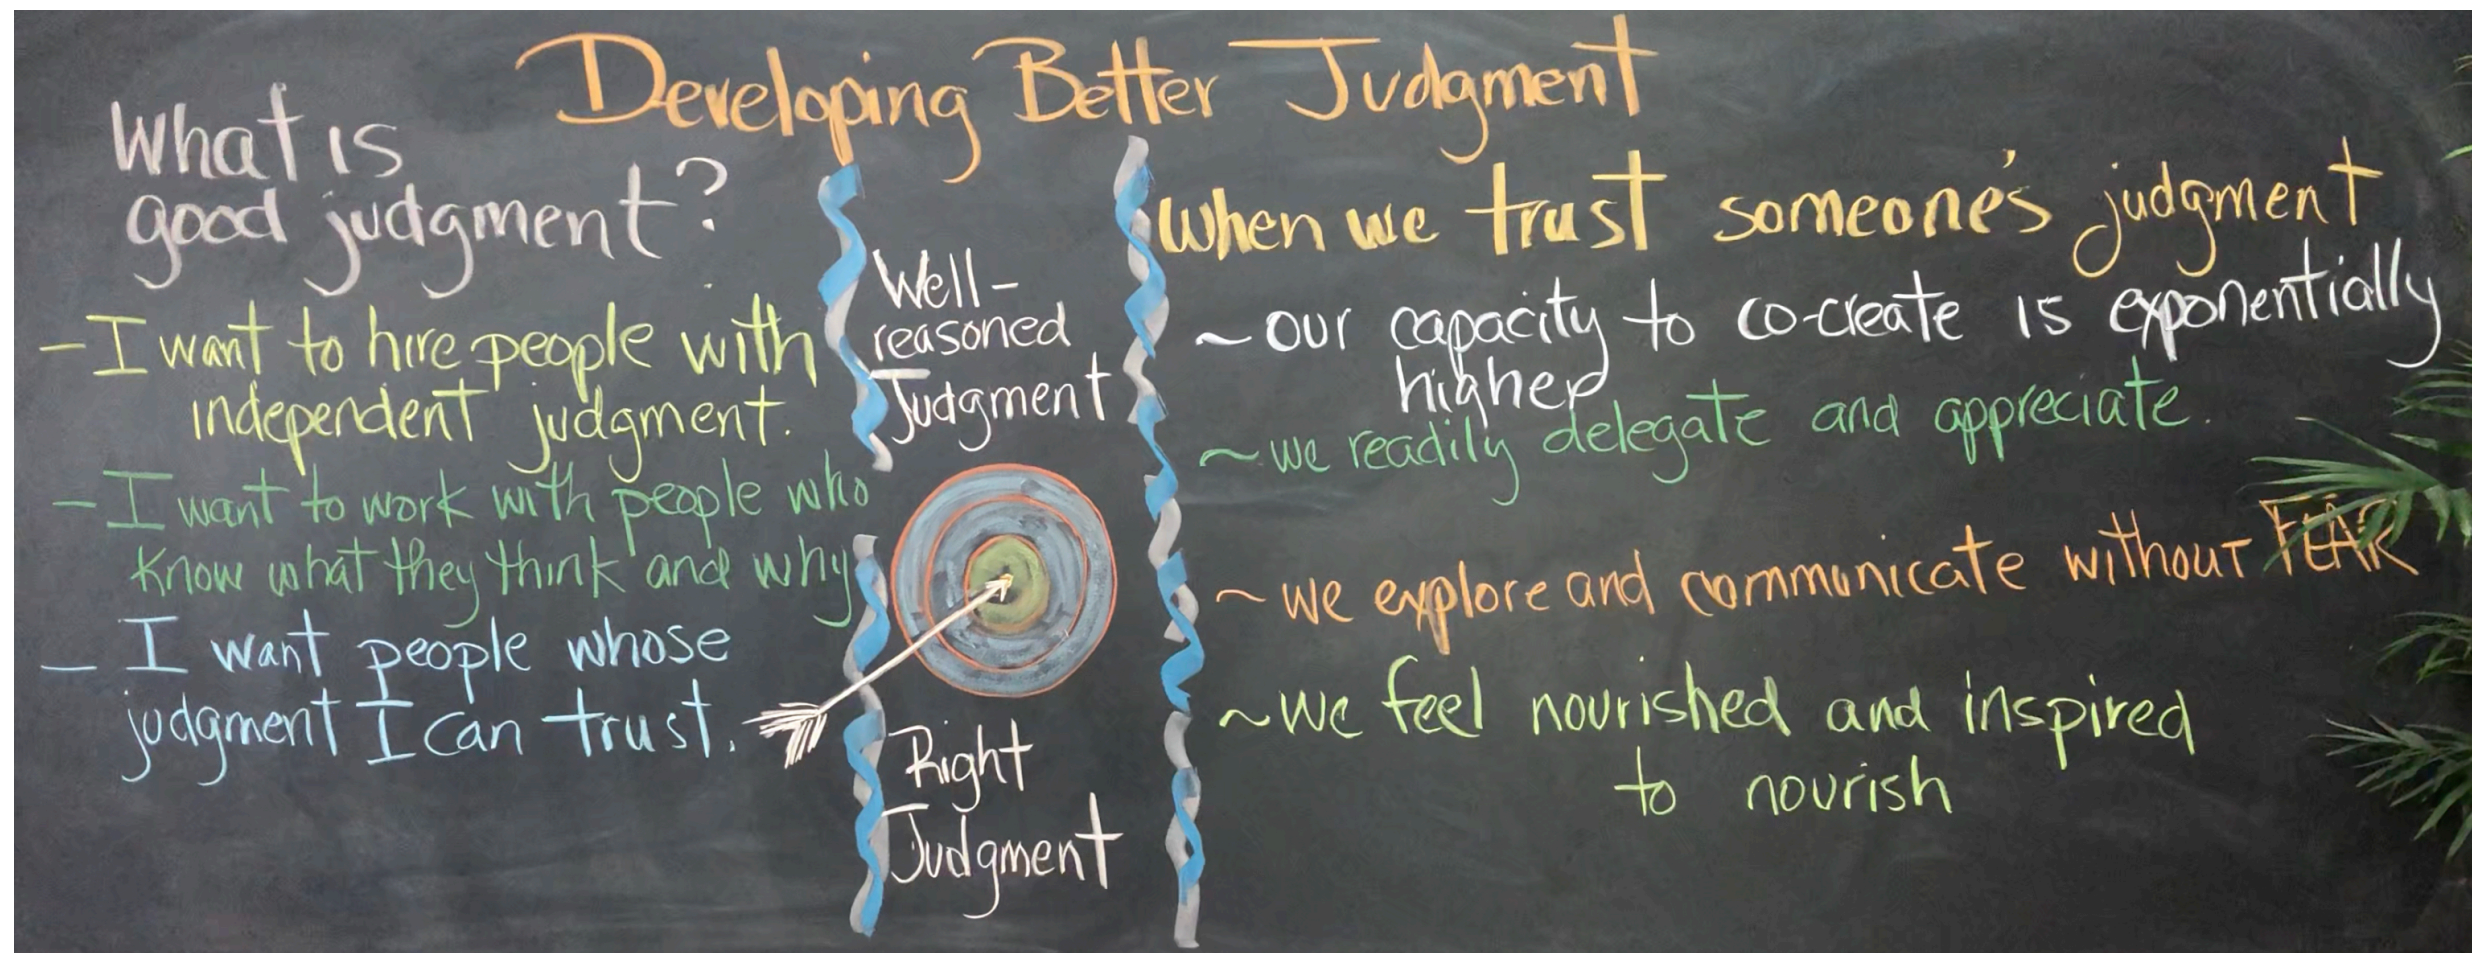 Developing Better Judgment
What is
good judgment?
- I want to hire people with
independent judgment.
- I want to work with people who
know what they think and why
- I want people whose
judgment I can trust.
Well-
reasoned
Judgment
Right
Judgment
When we trust someone's judgment
~ our capacity to co-create is exponentially
higher
~ we readily delegate and appreciate.
~ we explore and communicate without FEAR
~ we feel nourished and inspired
to nourish